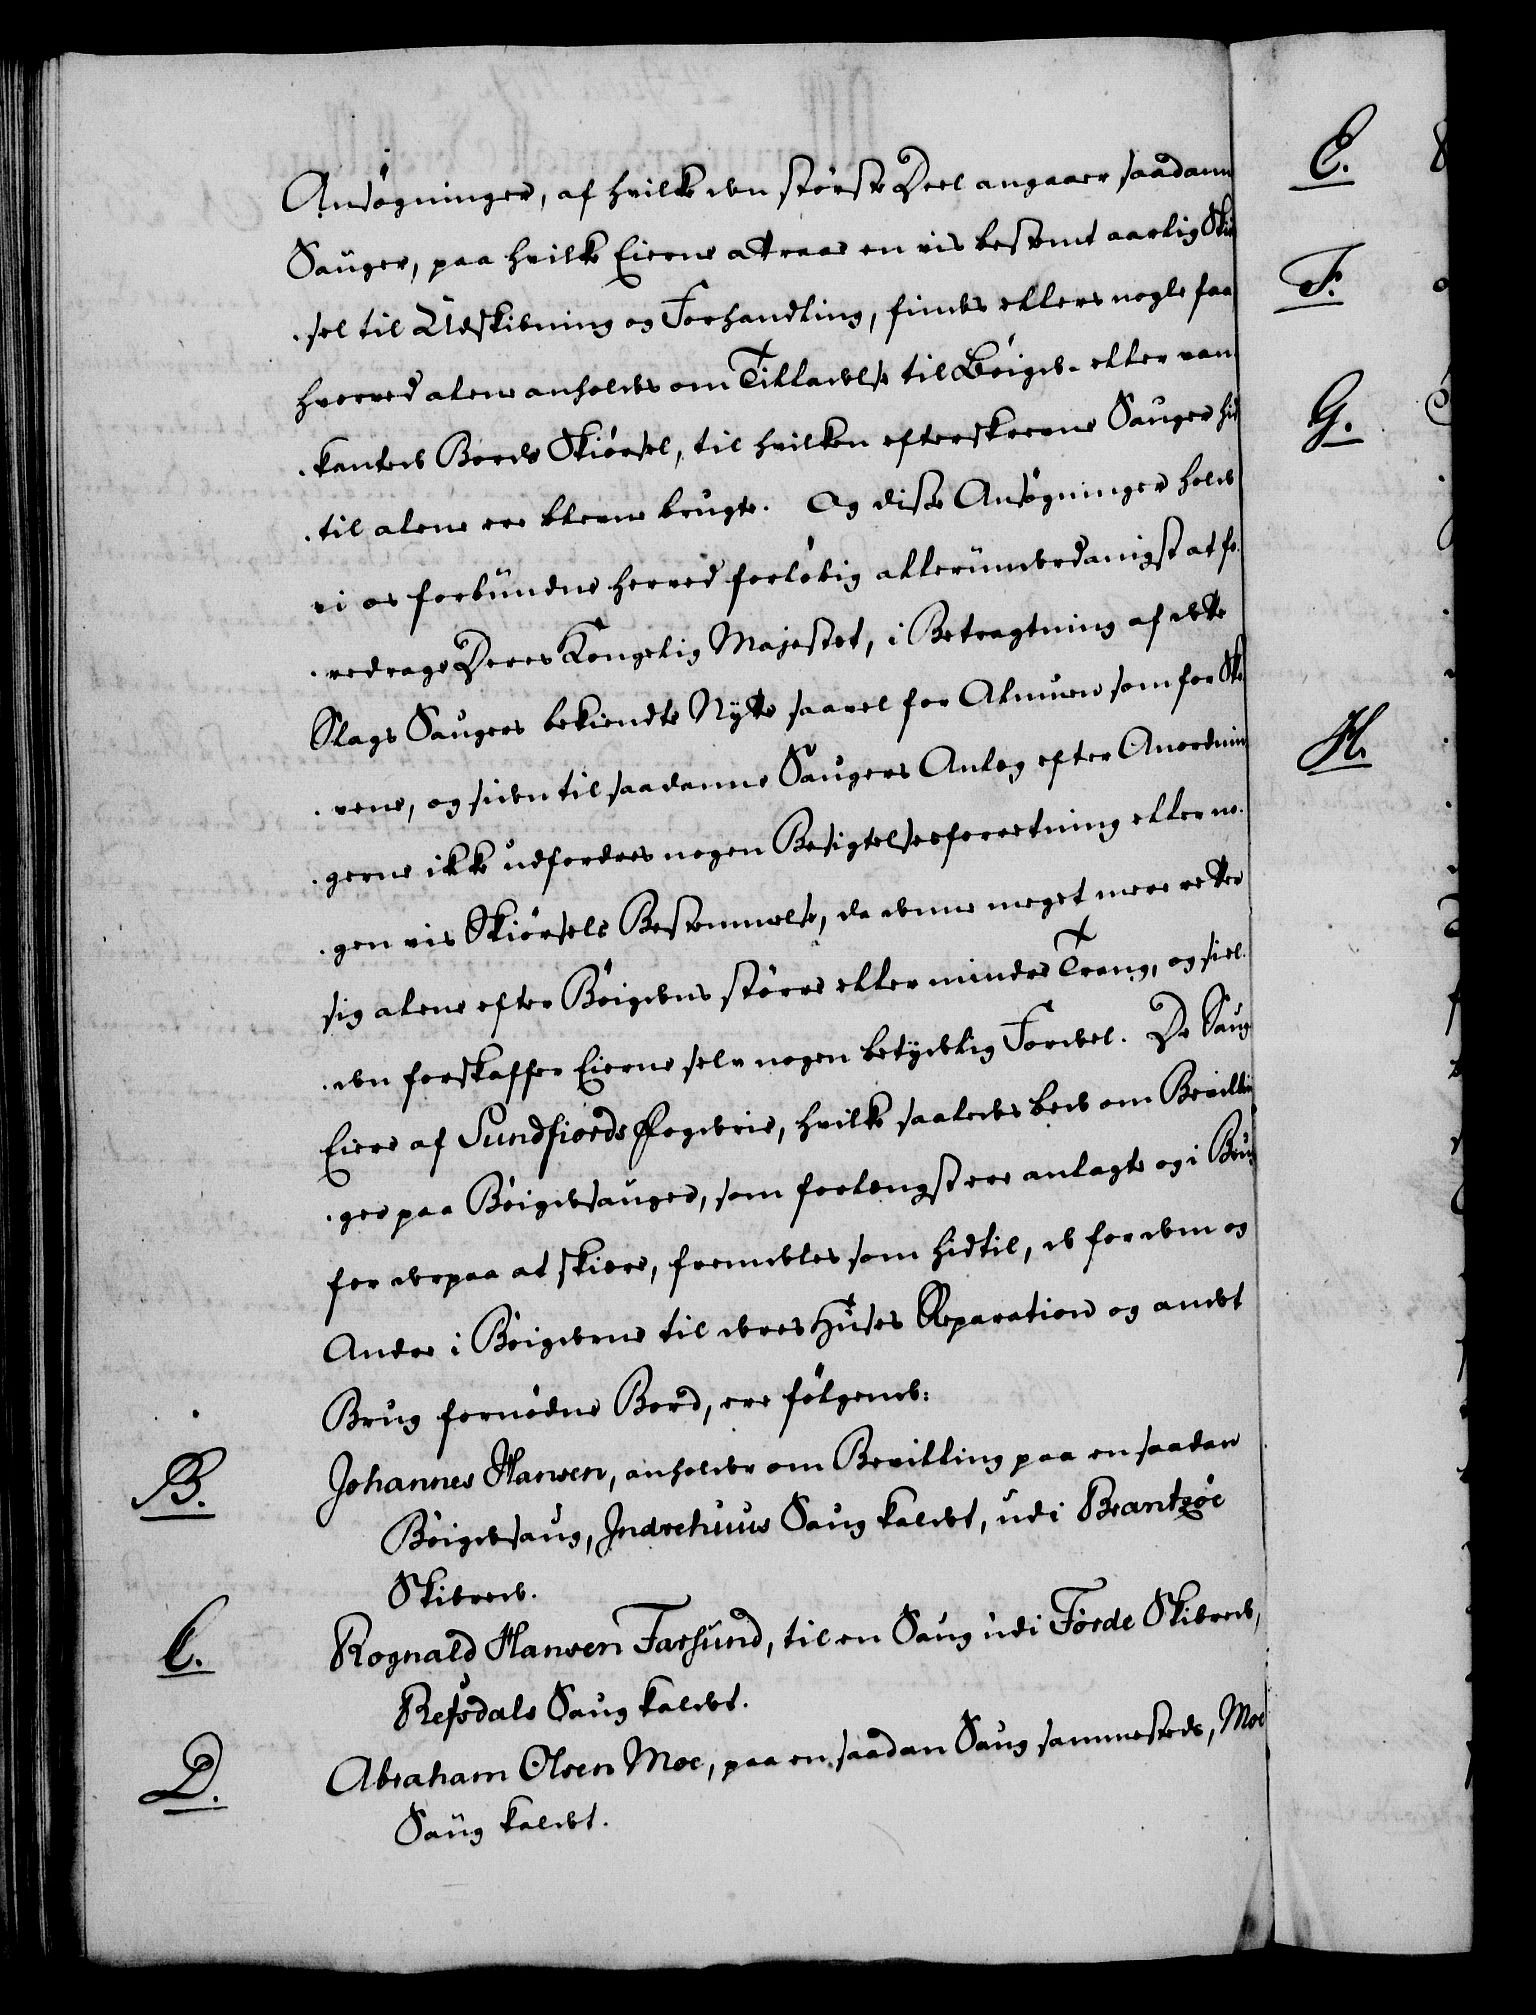 Ansøgninger, af hvilke den største Deel angaaer saadanne
Sauger, paa hvilke Eierne attraae en vis bestemt aarlig Skiør-
sel til Udskibning og Forhandling, findes ellers nogle faa
hvorved alene anholdes om Tilladelse til Bøigde- eller van-
kantede Bords Skiørsel, til hvilken efterskrevne Sauger hid
til alene ere blevne brugte. Og disse Ansøgninger holde
vi os forbundne herved forløbig allerunderdanigst at fo-
redrage Deres Kongelig Majestet, i Betragtning af dette
Slags Saugers bekiendte Nytte saavel for Almuen som for Sko-
vene, og siden til saadanne Saugers Anleg efter Anordnin-
gerne ikke udfordres nogen Besigtelsesforretning eller no-
gen vis Skiørsels Bestemmelse, da denne meget mere retter
sig alene efter Bøigdens større eller mindre Trang, og siel-
den forskaffer Eierne selv nogen betydelig Fordeel. De Saug
Eiere af Sundfiords Fogderie, hvilke saaledes bede om Bevillin-
ger paa Bøigdesauger, som forlengst ere anlagte og i Brug
for derpaa at skiere, fremdeles som hidtil, de for dem og
Andre i Bøigderne til deres Huses Reparation og andet
Brug fornødne Bord, ere følgende:
B. Johannes Hansen, anholder om Bevilling paa en saadan
Bøigdesaug, Indrehuus Saug kaldet, udi Brantzøe
Skibrede.
C. Rognald Hansen Farsund, til en Saug udi Førde Skibrede,
Refsdals Saug kaldet.
D. Abraham Olsen Moe, paa en saadan Saug sammesteds, Moe
Saug kaldet.
E.
F.
G.
H.